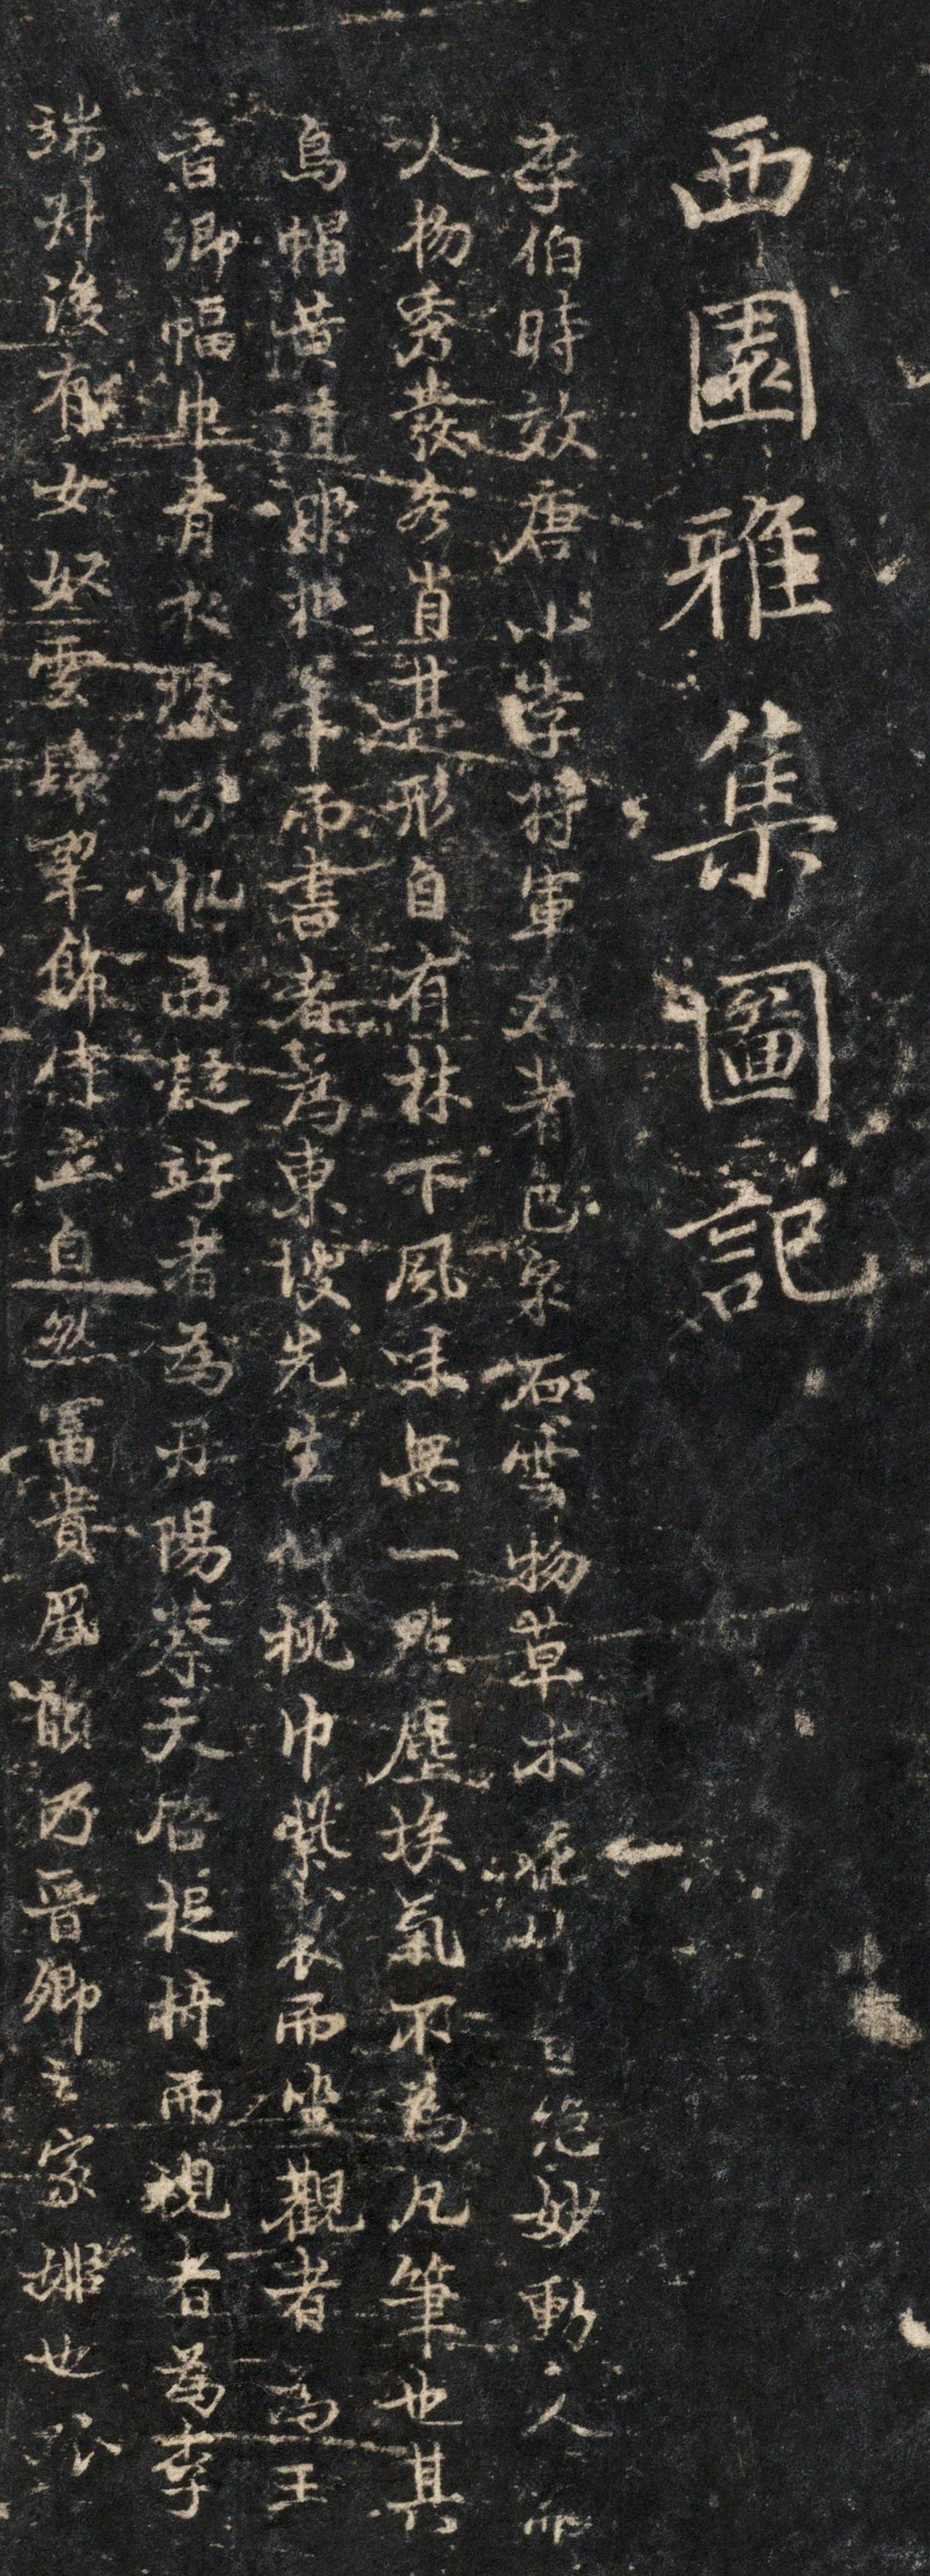 西園雅集圖記
李伯時效唐小李將軍為著色泉石雲物草木花竹皆絕妙動人而
人物秀發各肖其形自有林下風味無一點塵埃氣不為凡筆也其
烏帽黃道服捉筆而書者為東坡先生仙桃巾紫裘而坐觀者為王
晉卿幅巾青衣據方机而凝竚者為丹陽蔡天啓捉椅而視者為李
端叔後有女奴雲鬟翠飾侍立自然富貴風韻乃晉卿之家姬也孤